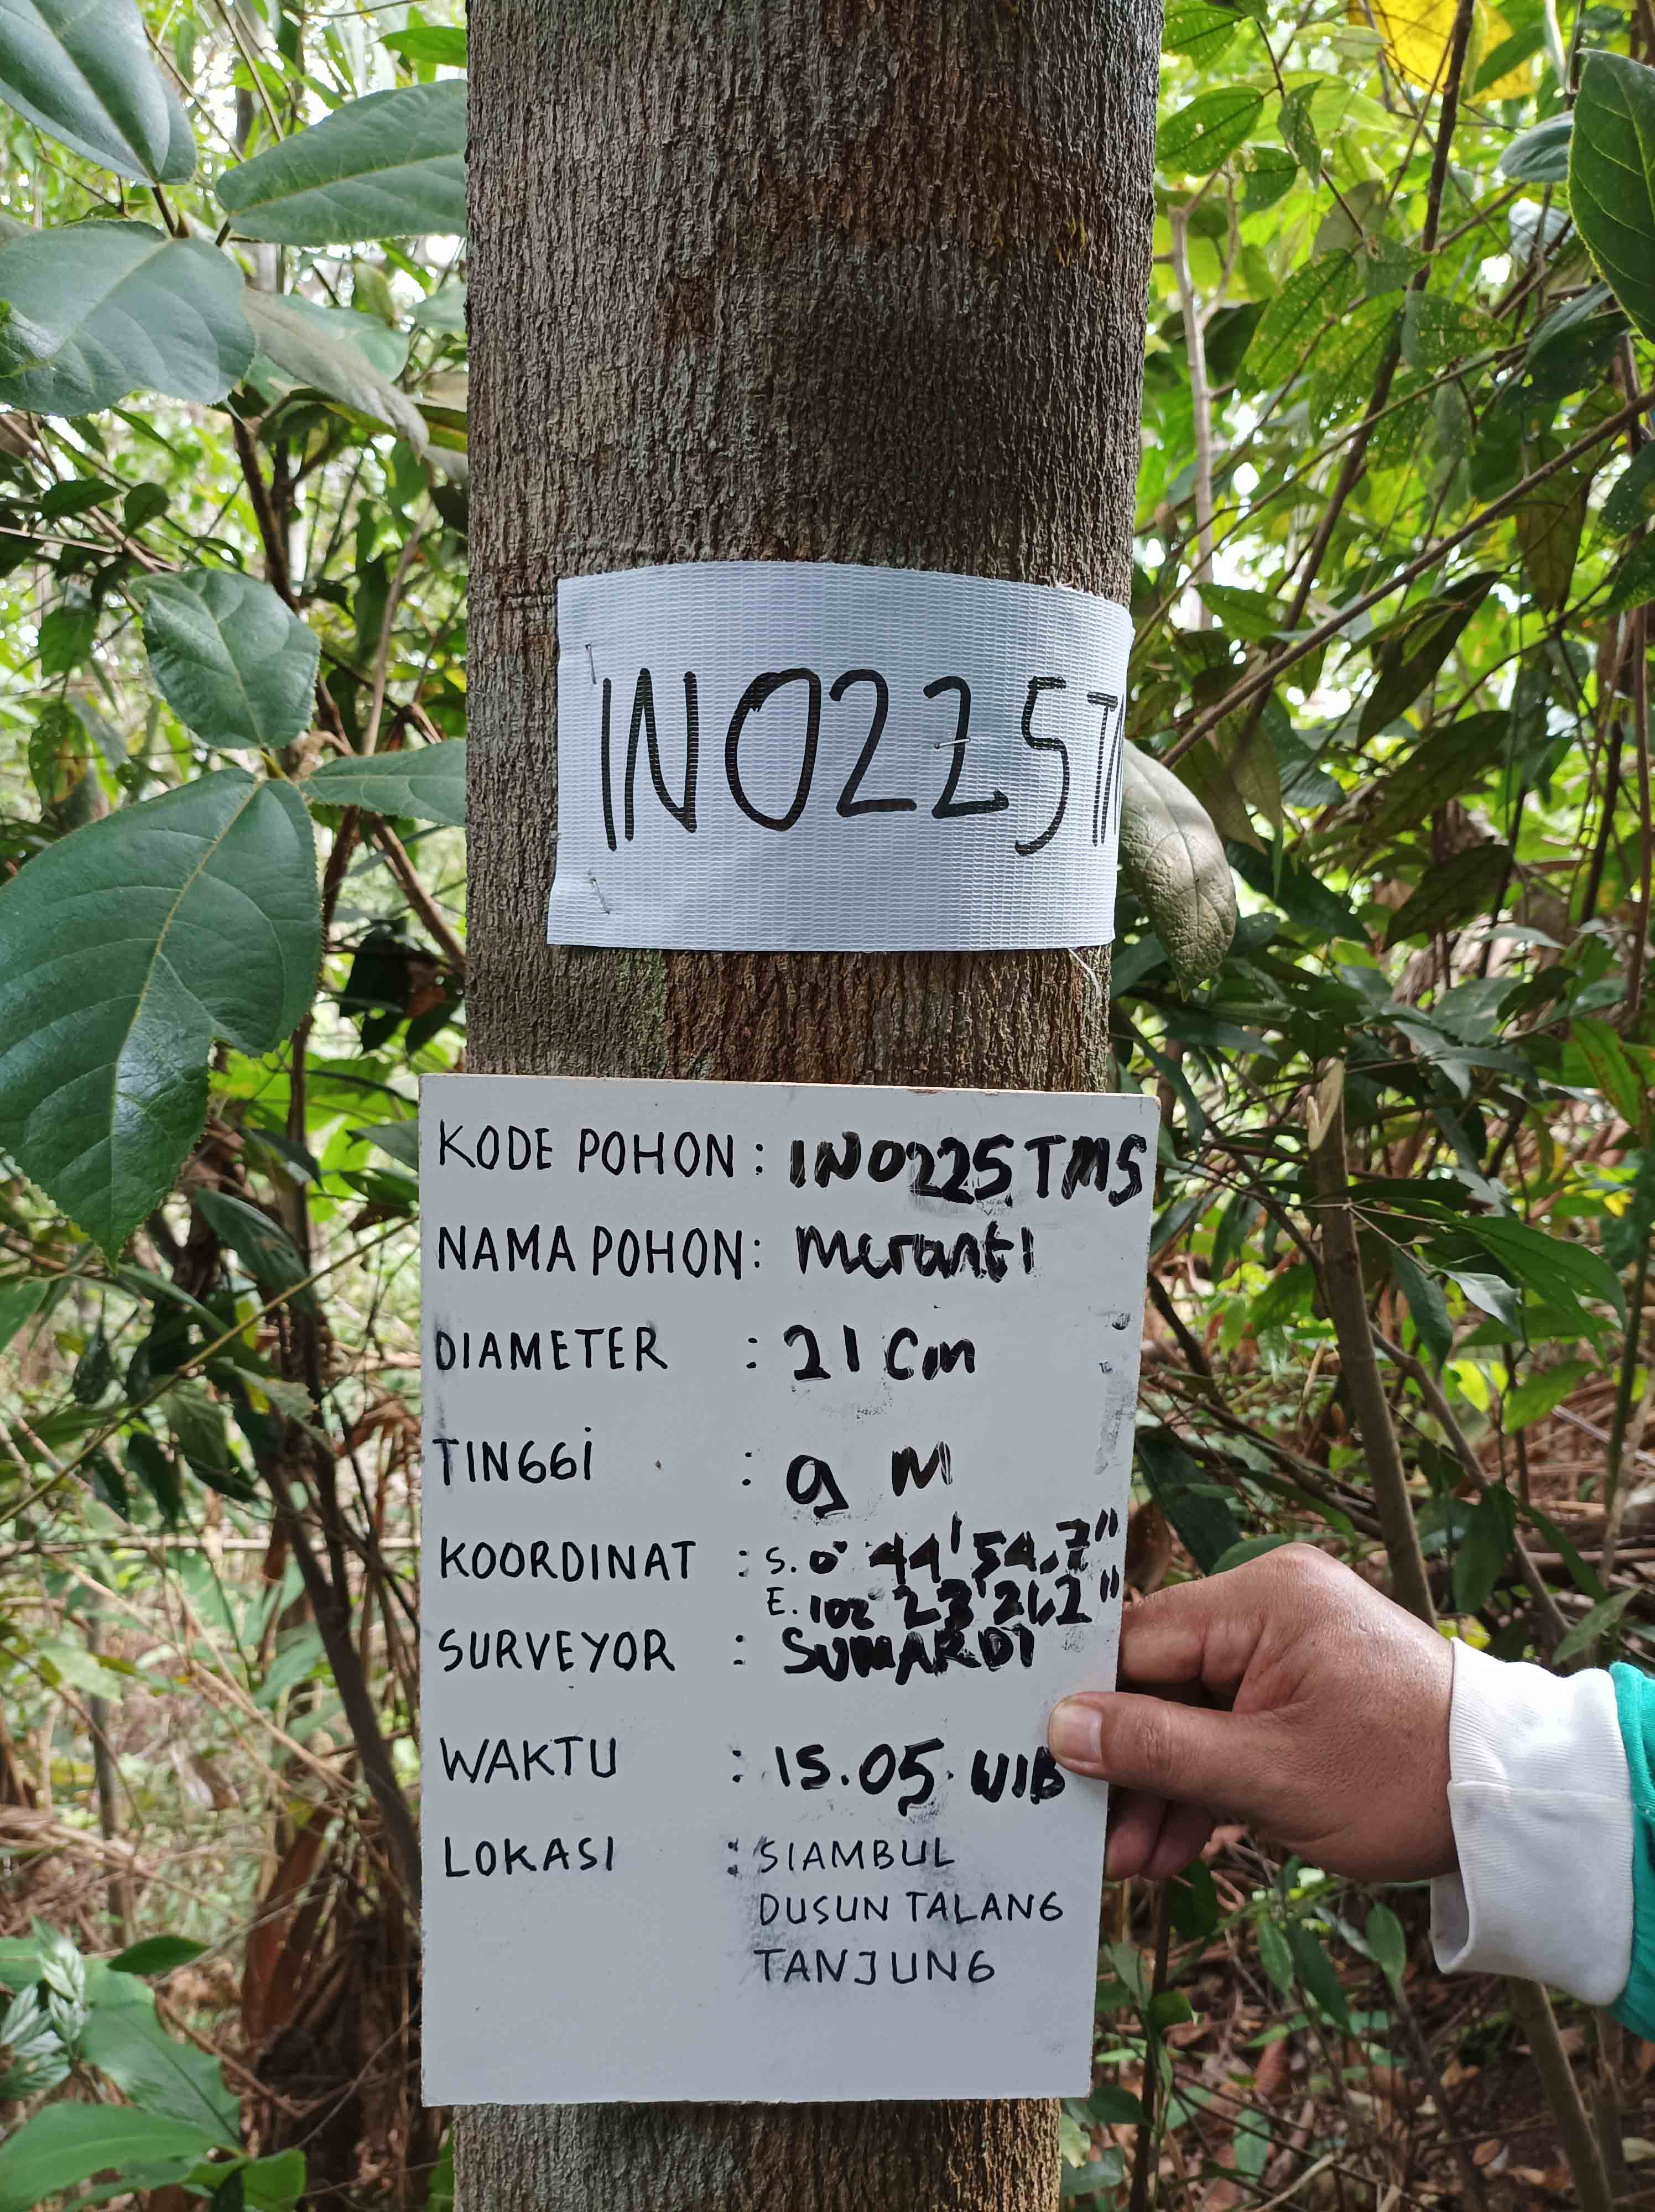 INO225TM
KODE POHON : INO225TMS
NAMA POHON : Meranti
DIAMETER : 21 Cm
TINGGI : 9 M
KOORDINAT : S. 0° 44' 54,7"
E. 102° 23' 21,2"
SURVEYOR : SUMARDI
WAKTU : 15.05 WIB
LOKASI : SIAMBUL
DUSUN TALANG
TANJUNG